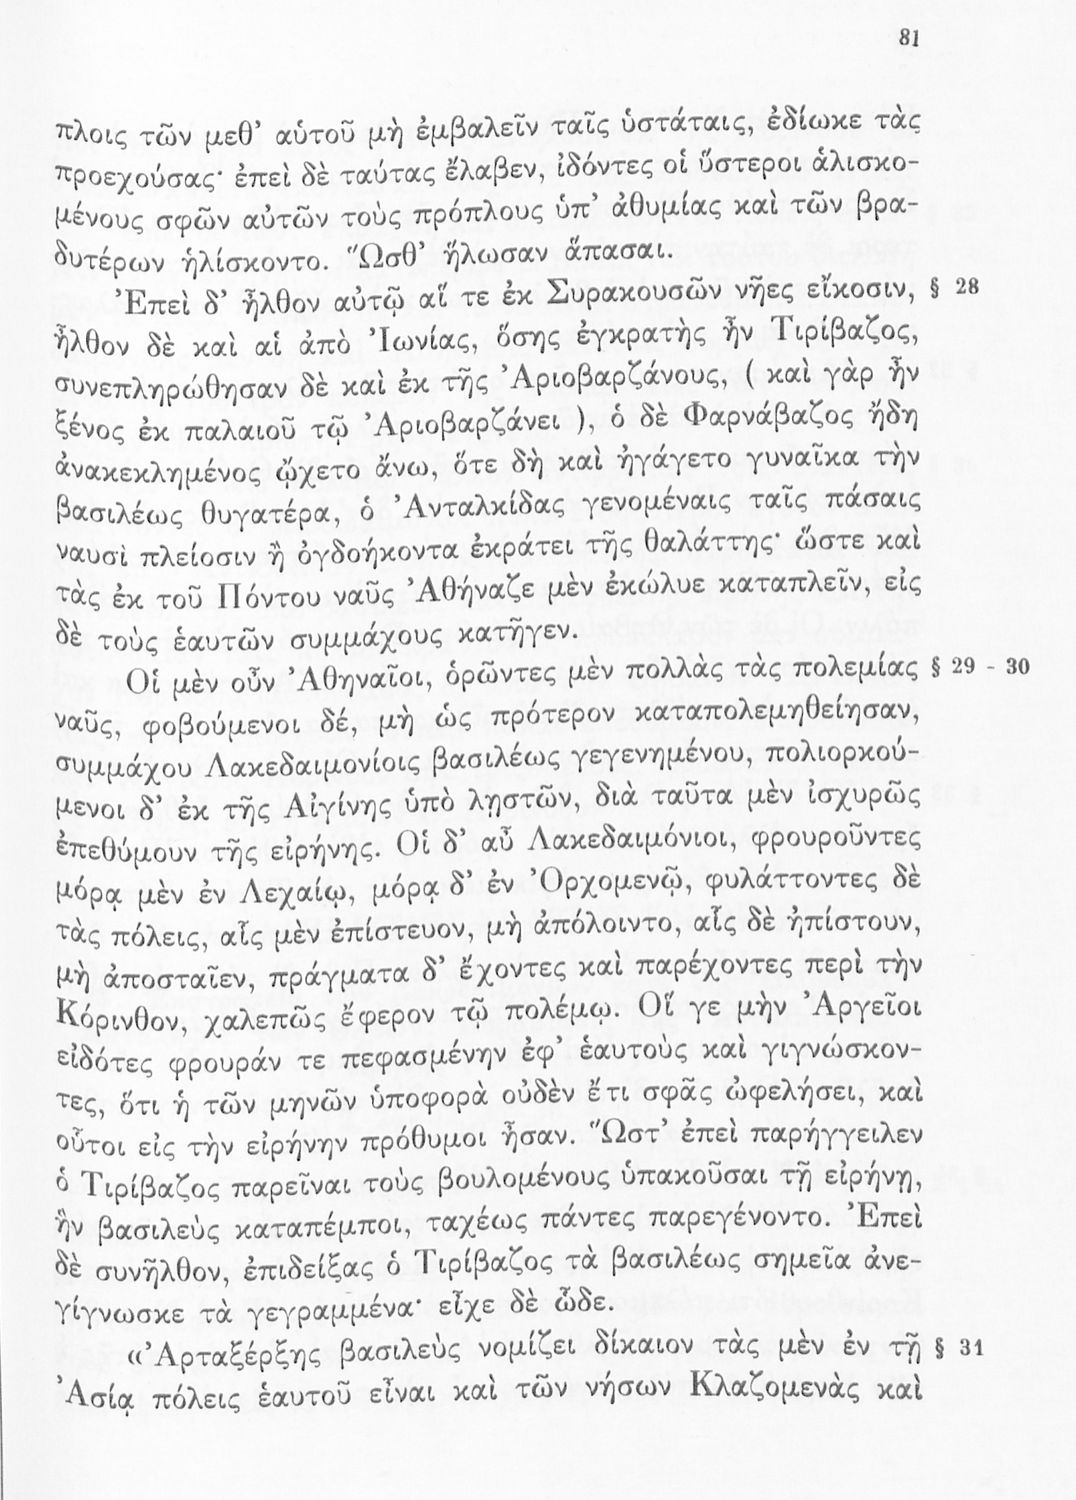 81
πλοις τῶν μεθ’ αὑτοῦ μὴ ἐμβαλεῖν ταῖς ὑστάταις, ἐδίωκε τὰς
προεχούσας· ἐπεὶ δὲ ταύτας ἔλαβεν, ἰδόντες οἱ ὕστεροι ἁλισκο-
μένους σφῶν αὐτῶν τοὺς πρόπλους ὑπ’ ἀθυμίας καὶ τῶν βρα-
δυτέρων ἡλίσκοντο. Ὥσθ’ ἥλωσαν ἅπασαι.
Ἐπεὶ δ’ ἦλθον αὐτῷ αἵ τε ἐκ Συρακουσῶν νῆες εἴκοσιν, § 28
ἦλθον δὲ καὶ αἱ ἀπὸ Ἰωνίας, ὅσης ἐγκρατὴς ἦν Τιρίβαζος,
συνεπληρώθησαν δὲ καὶ ἐκ τῆς Ἀριοβαρζάνους, ( καὶ γὰρ ἦν
ξένος ἐκ παλαιοῦ τῷ Ἀριοβαρζάνει ), ὁ δὲ Φαρνάβαζος ἤδη
ἀνακεκλημένος ᾤχετο ἄνω, ὅτε δὴ καὶ ἠγάγετο γυναῖκα τὴν
βασιλέως θυγατέρα, ὁ Ἀνταλκίδας γενομέναις ταῖς πάσαις
ναυσὶ πλείοσιν ἢ ὀγδοήκοντα ἐκράτει τῆς θαλάττης· ὥστε καὶ
τὰς ἐκ τοῦ Πόντου ναῦς Ἀθήναζε μὲν ἐκώλυε καταπλεῖν, εἰς
δὲ τοὺς ἑαυτῶν συμμάχους κατῆγεν.
Οἱ μὲν οὖν Ἀθηναῖοι, ὁρῶντες μὲν πολλὰς τὰς πολεμίας § 29 - 30
ναῦς, φοβούμενοι δέ, μὴ ὡς πρότερον καταπολεμηθείησαν,
συμμάχου Λακεδαιμονίοις βασιλέως γεγενημένου, πολιορκού-
μενοι δ’ ἐκ τῆς Αἰγίνης ὑπὸ λῃστῶν, διὰ ταῦτα μὲν ἰσχυρῶς
ἐπεθύμουν τῆς εἰρήνης. Οἱ δ’ αὖ Λακεδαιμόνιοι, φρουροῦντες
μόρᾳ μὲν ἐν Λεχαίῳ, μόρᾳ δ’ ἐν Ὀρχομενῷ, φυλάττοντες δὲ
τὰς πόλεις, αἷς μὲν ἐπίστευον, μὴ ἀπόλοιντο, αἷς δὲ ἠπίστουν,
μὴ ἀποσταῖεν, πράγματα δ’ ἔχοντες καὶ παρέχοντες περὶ τὴν
Κόρινθον, χαλεπῶς ἔφερον τῷ πολέμῳ. Οἵ γε μὴν Ἀργεῖοι
εἰδότες φρουράν τε πεφασμένην ἐφ’ ἑαυτοὺς καὶ γιγνώσκον-
τες, ὅτι ἡ τῶν μηνῶν ὑποφορὰ οὐδὲν ἔτι σφᾶς ὠφελήσει, καὶ
οὗτοι εἰς τὴν εἰρήνην πρόθυμοι ἦσαν. Ὥστ’ ἐπεὶ παρήγγειλεν
ὁ Τιρίβαζος παρεῖναι τοὺς βουλομένους ὑπακοῦσαι τῇ εἰρήνῃ,
ἣν βασιλεὺς καταπέμποι, ταχέως πάντες παρεγένοντο. Ἐπεὶ
δὲ συνῆλθον, ἐπιδείξας ὁ Τιρίβαζος τὰ βασιλέως σημεῖα ἀνε-
γίγνωσκε τὰ γεγραμμένα· εἶχε δὲ ὧδε.
«Ἀρταξέρξης βασιλεὺς νομίζει δίκαιον τὰς μὲν ἐν τῇ § 31
Ἀσίᾳ πόλεις ἑαυτοῦ εἶναι καὶ τῶν νήσων Κλαζομενὰς καὶ